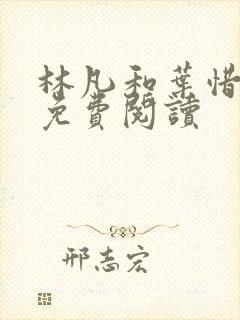 林凡和葉惜
免費閱讀
邢志宏